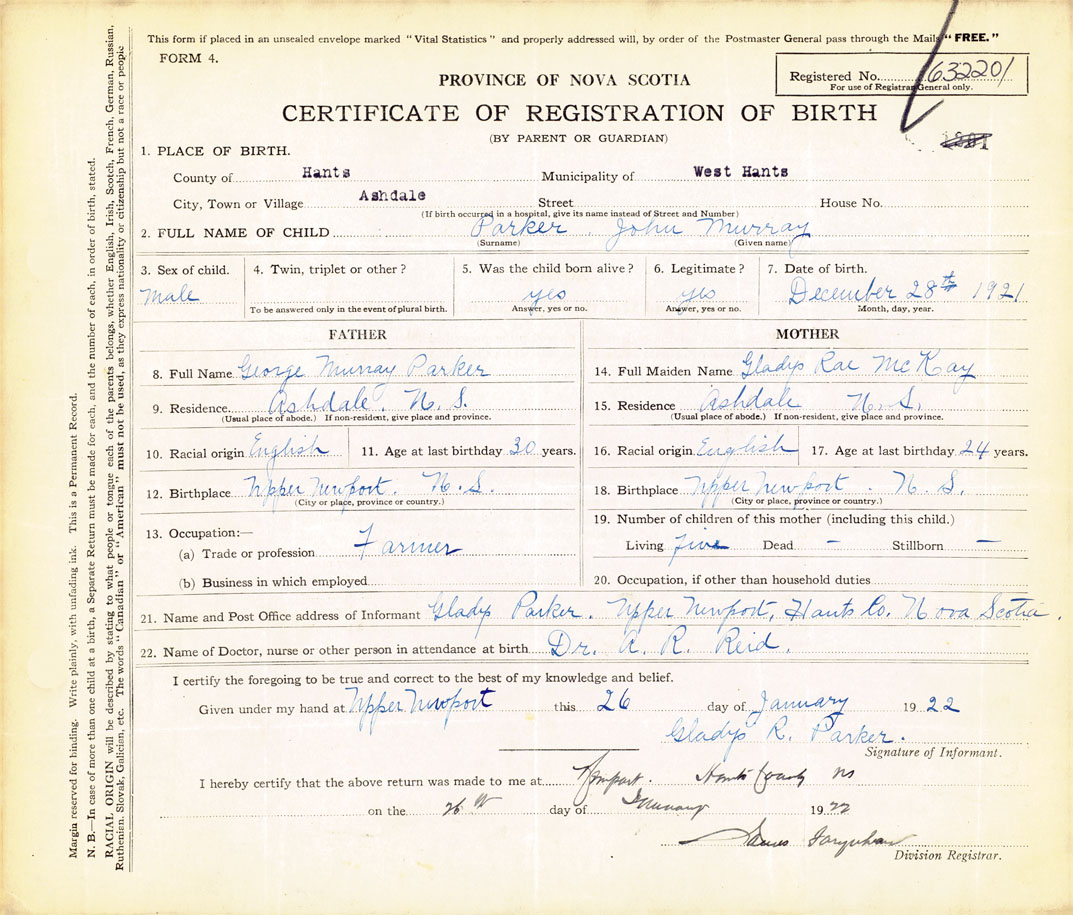 This form if placed in an unsealed envelope marked "Vital Statistics" and properly addressed will, by order of the Postmaster General pass through the Mails "FREE."
FORM 4.
Registered No. 632201
For use of Registrar General only.
PROVINCE OF NOVA SCOTIA
CERTIFICATE OF REGISTRATION OF BIRTH
(BY PARENT OR GUARDIAN)
1. PLACE OF BIRTH.
County of Hants Municipality of West Hants
City, Town or Village Ashdale Street House No.
(If birth occurred in a hospital, give its name instead of Street and Number)
2. FULL NAME OF CHILD Parker, John Murray
(Surname) (Given name)
3. Sex of child. 4. Twin, triplet or other? 5. Was the child born alive? 6. Legitimate? 7. Date of birth.
Male yes yes December 28th 1921
To be answered only in the event of plural birth. Answer, yes or no. Answer, yes or no. Month, day, year.
FATHER
8. Full Name George Murray Parker
9. Residence Ashdale, N.S.
(Usual place of abode.) If non-resident, give place and province.
10. Racial origin English 11. Age at last birthday 30 years.
12. Birthplace Upper Newport. N.S.
(City or place, province or country.)
13. Occupation:—
(a) Trade or profession Farmer
(b) Business in which employed
MOTHER
14. Full Maiden Name Gladys Rae McKay
15. Residence Ashdale N.S.
(Usual place of abode.) If non-resident, give place and province.
16. Racial origin English 17. Age at last birthday 24 years.
18. Birthplace Upper Newport. N.S.
(City or place, province or country.)
19. Number of children of this mother (including this child.)
Living five Dead – Stillborn –
20. Occupation, if other than household duties
21. Name and Post Office address of Informant Gladys Parker. Upper Newport, Hants Co. Nova Scotia.
22. Name of Doctor, nurse or other person in attendance at birth Dr. A. R. Reid.
I certify the foregoing to be true and correct to the best of my knowledge and belief.
Given under my hand at Upper Newport this 26 day of January 1922
Gladys R. Parker.
Signature of Informant.
I hereby certify that the above return was made to me at Newport. Hants County NS
on the 26th day of January 1922
James Farquhar
Division Registrar.
Margin reserved for binding. Write plainly, with unfading ink. This is a Permanent Record.
N. B.—In case of more than one child at a birth, a Separate Return must be made for each, and the number of each, in order of birth, stated.
RACIAL ORIGIN will be described by stating to what people or tongue each of the parents belongs, whether English, Irish, Scotch, French, German, Russian,
Ruthenian, Slovak, Galician, etc. The words "Canadian" or "American" must not be used, as they express nationality or citizenship but not a race or people